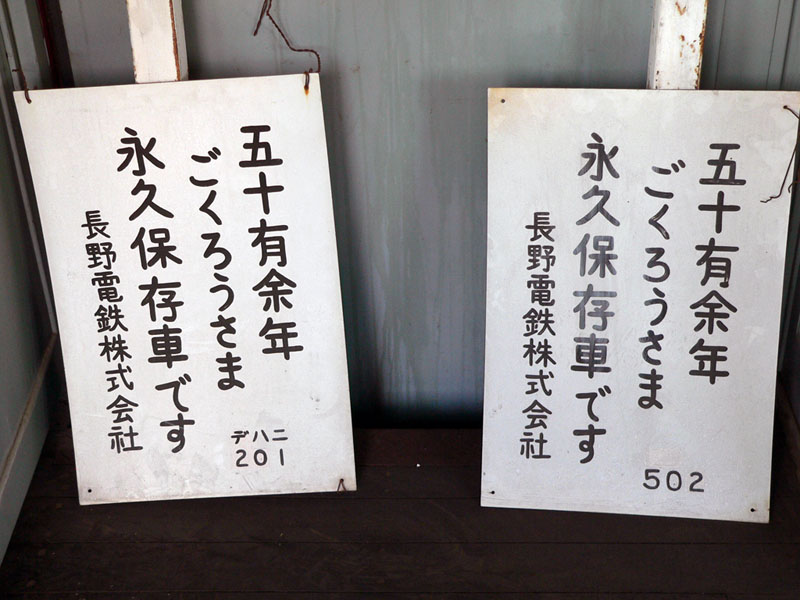 五十有余年
ごくろうさま
永久保存車です
長野電鉄株式会社
デハニ
201
五十有余年
ごくろうさま
永久保存車です
長野電鉄株式会社
502